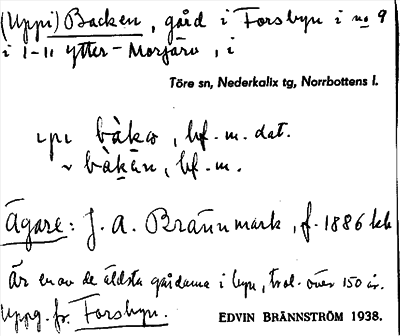 (Uppi) Backen, gård i Forsbyn i no 9
i 1-11 Ytter-Morjärv, i
Töre sn, Nederkalix tg, Norrbottens l.
bf. m. dat.
bf. m.
Ägare: J. A. Brännmark, f. 1886
Är en av de äldsta gårdarna i byn, trol. över 150 år.
Uppg. fr. Forsbyn.
EDVIN BRÄNNSTRÖM 1938.